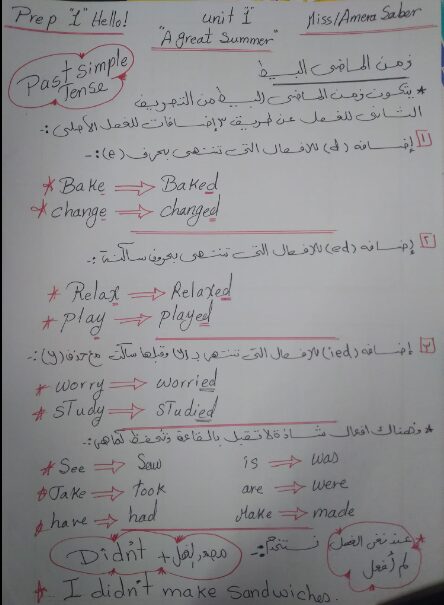 Prep "1" Hello! unit 1 Miss/Amera Saber
"A great Summer"
Past simple Tense
زمن الماضى البسيط
* يتكون زمن الماضى البسيط من التصريف
الثانى للفعل عن طريق ٣ إضافات للفعل الأصلى :-
١ إضافه (d) للافعال التى تنتهى بحرف (e) :-
* Bake ⇒ Baked
* change ⇒ changed
٢ إضافه (ed) للافعال التى تنتهى بحروف ساكنة :-
* Relax ⇒ Relaxed
* play ⇒ played
٣ إضافه (ied) للافعال التى تنتهى بـ (y) وقبلها ساكن مع حذف (y) :-
* worry ⇒ worried
* study ⇒ studied
* وهناك افعال شاذة لا تتقيد بالقاعدة وتحفظ كما هى :-
* See ⇒ Saw is ⇒ was
* Take ⇒ took are ⇒ were
* have ⇒ had Make ⇒ made
* عند نفى الفعل نستخدم :- Didn't + مصدر الفعل
لم أفعل
* I didn't make sandwiches.